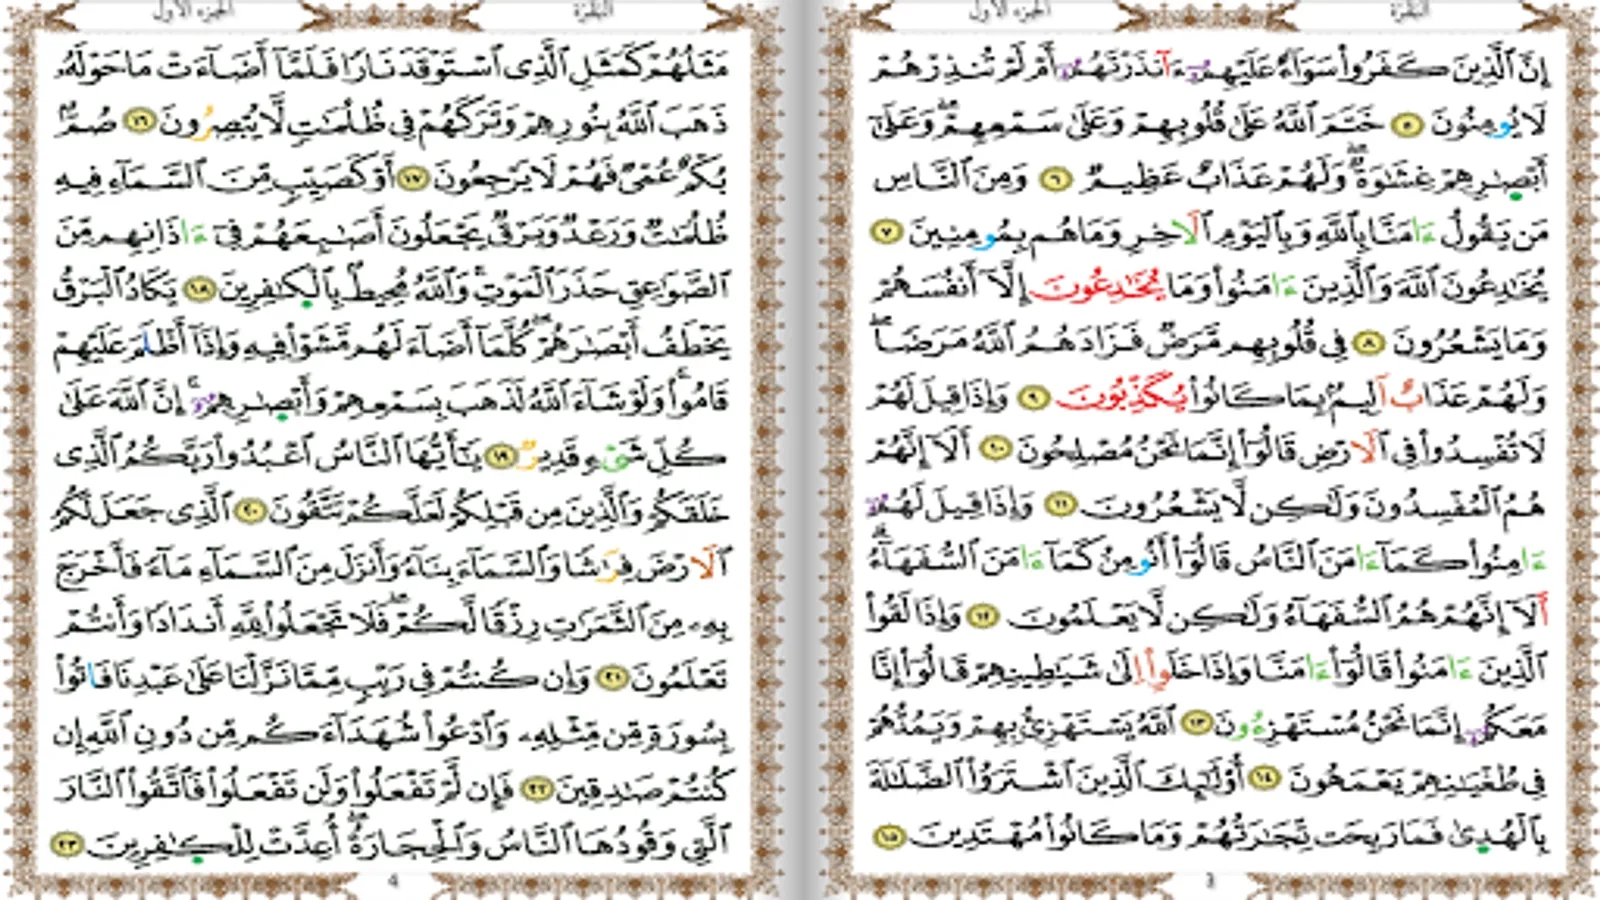 البقرة
الجزء الأول
إِنَّ ٱلَّذِينَ كَفَرُوا۟ سَوَآءٌ عَلَيْهِمُۥٓ ءَآنذَرْتَهُمُۥٓ أَمْ لَمْ تُنذِرْهُمْ
لَا يُومِنُونَ ٥ خَتَمَ ٱللَّهُ عَلَىٰ قُلُوبِهِمْ وَعَلَىٰ سَمْعِهِمْ وَعَلَىٰٓ
أَبْصَٰرِهِمْ غِشَٰوَةٌ وَلَهُمْ عَذَابٌ عَظِيمٌ ٦ وَمِنَ ٱلنَّاسِ
مَن يَقُولُ ءَامَنَّا بِٱللَّهِ وَبِٱلْيَوْمِ ٱلَاخِرِ وَمَا هُم بِمُومِنِينَ ٧
يُخَٰدِعُونَ ٱللَّهَ وَٱلَّذِينَ ءَامَنُوا۟ وَمَا يُخَٰدِعُونَ إِلَّآ أَنفُسَهُمْ
وَمَا يَشْعُرُونَ ٨ فِى قُلُوبِهِم مَّرَضٌ فَزَادَهُمُ ٱللَّهُ مَرَضًا
وَلَهُمْ عَذَابٌ اَلِيمٌۢ بِمَا كَانُوا۟ يُكَذِّبُونَ ٩ وَإِذَا قِيلَ لَهُمْ
لَا تُفْسِدُوا۟ فِى ٱلَارْضِ قَالُوٓا۟ إِنَّمَا نَحْنُ مُصْلِحُونَ ١٠ أَلَآ إِنَّهُمْ
هُمُ ٱلْمُفْسِدُونَ وَلَٰكِن لَّا يَشْعُرُونَ ١١ وَإِذَا قِيلَ لَهُمُۥٓ
ءَامِنُوا۟ كَمَآ ءَامَنَ ٱلنَّاسُ قَالُوٓا۟ أَنُومِنُ كَمَآ ءَامَنَ ٱلسُّفَهَآءُ
أَلَآ إِنَّهُمْ هُمُ ٱلسُّفَهَآءُ وَلَٰكِن لَّا يَعْلَمُونَ ١٢ وَإِذَا لَقُوا۟
ٱلَّذِينَ ءَامَنُوا۟ قَالُوٓا۟ ءَامَنَّا وَإِذَا خَلَوِا۟ اِلَىٰ شَيَٰطِينِهِمْ قَالُوٓا۟ إِنَّا
مَعَكُمُۥٓ إِنَّمَا نَحْنُ مُسْتَهْزِءُونَ ١٣ ٱللَّهُ يَسْتَهْزِئُ بِهِمْ وَيَمُدُّهُمْ
فِى طُغْيَٰنِهِمْ يَعْمَهُونَ ١٤ أُو۟لَٰٓئِكَ ٱلَّذِينَ ٱشْتَرَوُا۟ ٱلضَّلَٰلَةَ
بِٱلْهُدَىٰ فَمَا رَبِحَت تِّجَٰرَتُهُمْ وَمَا كَانُوا۟ مُهْتَدِينَ ١٥
3
البقرة
الجزء الأول
مَثَلُهُمْ كَمَثَلِ ٱلَّذِى ٱسْتَوْقَدَ نَارًا فَلَمَّآ أَضَآءَتْ مَا حَوْلَهُۥ
ذَهَبَ ٱللَّهُ بِنُورِهِمْ وَتَرَكَهُمْ فِى ظُلُمَٰتٍ لَّا يُبْصِرُونَ ١٦ صُمٌّۢ
بُكْمٌ عُمْىٌ فَهُمْ لَا يَرْجِعُونَ ١٧ أَوْ كَصَيِّبٍ مِّنَ ٱلسَّمَآءِ فِيهِ
ظُلُمَٰتٌ وَرَعْدٌ وَبَرْقٌ يَجْعَلُونَ أَصَٰبِعَهُمْ فِىٓ ءَاذَانِهِم مِّنَ
ٱلصَّوَٰعِقِ حَذَرَ ٱلْمَوْتِ وَٱللَّهُ مُحِيطٌۢ بِٱلْكَٰفِرِينَ ١٨ يَكَادُ ٱلْبَرْقُ
يَخْطَفُ أَبْصَٰرَهُمْ كُلَّمَآ أَضَآءَ لَهُم مَّشَوْا۟ فِيهِ وَإِذَآ أَظْلَمَ عَلَيْهِمْ
قَامُوا۟ وَلَوْ شَآءَ ٱللَّهُ لَذَهَبَ بِسَمْعِهِمْ وَأَبْصَٰرِهِمُۥٓ إِنَّ ٱللَّهَ عَلَىٰ
كُلِّ شَىْءٍ قَدِيرٌ ١٩ يَٰٓأَيُّهَا ٱلنَّاسُ ٱعْبُدُوا۟ رَبَّكُمُ ٱلَّذِى
خَلَقَكُمْ وَٱلَّذِينَ مِن قَبْلِكُمْ لَعَلَّكُمْ تَتَّقُونَ ٢٠ ٱلَّذِى جَعَلَ لَكُمُ
ٱلَارْضَ فِرَٰشًا وَٱلسَّمَآءَ بِنَآءً وَأَنزَلَ مِنَ ٱلسَّمَآءِ مَآءً فَأَخْرَجَ
بِهِۦ مِنَ ٱلثَّمَرَٰتِ رِزْقًا لَّكُمْ فَلَا تَجْعَلُوا۟ لِلَّهِ أَندَادًا وَأَنتُمْ
تَعْلَمُونَ ٢١ وَإِن كُنتُمْ فِى رَيْبٍ مِّمَّا نَزَّلْنَا عَلَىٰ عَبْدِنَا فَاتُوا۟
بِسُورَةٍ مِّن مِّثْلِهِۦ وَٱدْعُوا۟ شُهَدَآءَكُم مِّن دُونِ ٱللَّهِ إِن
كُنتُمْ صَٰدِقِينَ ٢٢ فَإِن لَّمْ تَفْعَلُوا۟ وَلَن تَفْعَلُوا۟ فَٱتَّقُوا۟ ٱلنَّارَ
ٱلَّتِى وَقُودُهَا ٱلنَّاسُ وَٱلْحِجَارَةُ أُعِدَّتْ لِلْكَٰفِرِينَ ٢٣
4